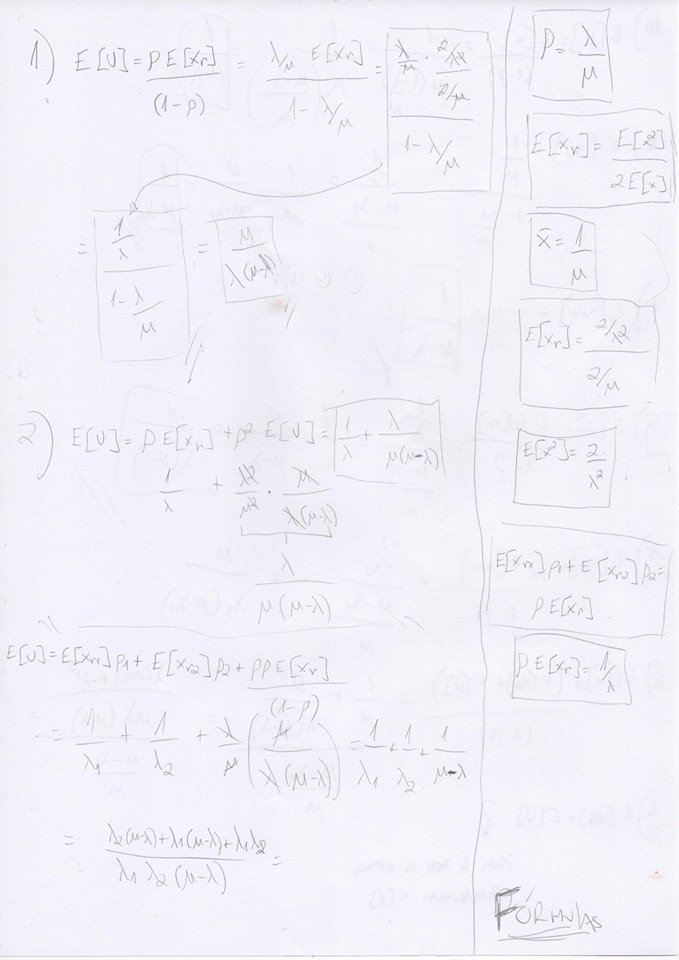 1) E[U] = ρE[Xr]/(1-ρ) = (λ/μ E[Xr])/(1-λ/μ) = (λ/μ · (2/λ²)/(2/μ))/(1-λ/μ)
= (1/λ)/(1-λ/μ) = μ/λ(μ-λ) //
//
2) E[U] = ρE[Xr] + ρ² E[U] = 1/λ + λ/μ(μ-λ)
1/λ + λ²/μ² · μ/λ(μ-λ)
λ/μ(μ-λ)
E[U] = E[Xr1]ρ1 + E[Xr2]ρ2 + ρρE[Xr]/(1-ρ)
= 1/λ1 + 1/λ2 + λ/μ (μ/λ(μ-λ)) = 1/λ1 + 1/λ2 + 1/μ-λ
= λ2(μ-λ)+λ1(μ-λ)+λ1λ2/λ1λ2(μ-λ) =
ρ = λ/μ
E[Xr] = E[X²]/2E[X]
x̄ = 1/μ
E[Xr] = (2/λ²)/(2/μ)
E[X²] = 2/λ²
E[Xr1]ρ1 + E[Xr2]ρ2 =
ρE[Xr]
ρE[Xr] = 1/λ
FÓRMULAS